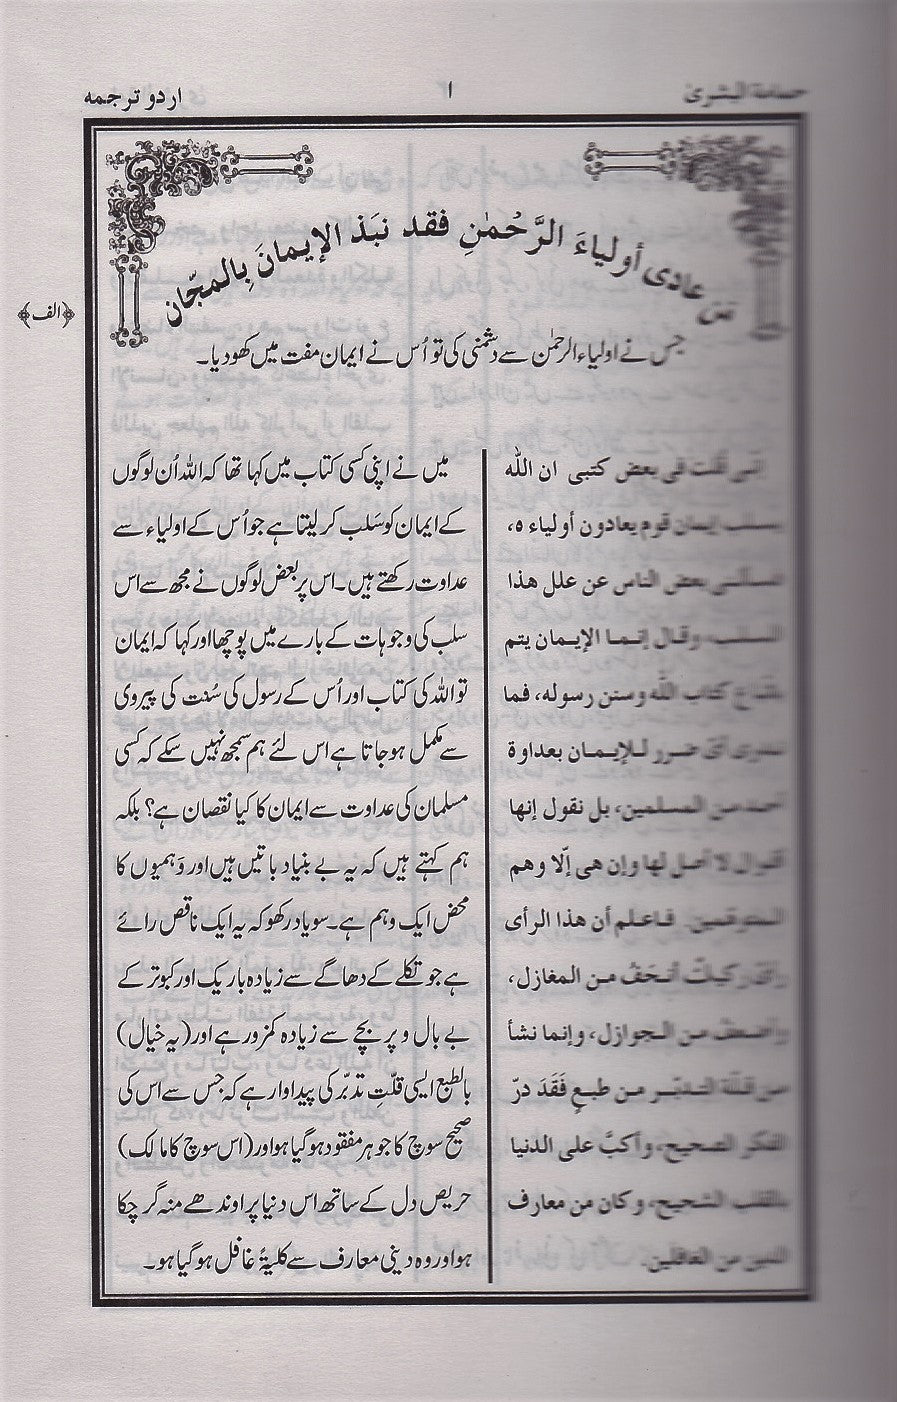 حمامة البشریٰ
۱
اردو ترجمہ
من عادى أولياءَ الرَّحْمٰنِ فقد نبَذ الإيمانَ بِالمجّان
﴿الف﴾
جس نے اولیاء الرحمٰن سے دشمنی کی تو اُس نے ایمان مفت میں کھو دیا۔
إنّى قلت فى بعض كتبى ان اللّٰه
يسلب إيمان قوم يعادون أولياء ه،
فسألنى بعض الناس عن علل هذا
السلب، وقال إنما الإيمان يتم
باتباع كتاب اللّٰه وسنن رسوله، فما
ندرى أىّ ضرر للإيمان بعداوة
أحد من المسلمين، بل نقول إنها
أقوال لا أصل لها وإن هى إلّا وهم
المتوهمين. فاعلم أن هذا الرأى
رأىٌ ركيكٌ أنحَفُ من المغازل،
وأضعفُ من الجوازل، وإنما نشأ
من قلّة التدبّر من طبعٍ فَقَدَ درّ
الفكر الصحيح، وأكبَّ على الدنيا
بالقلب الشحيح، وكان من معارف
الدين من الغافلين.
میں نے اپنی کسی کتاب میں کہا تھا کہ اللہ اُن لوگوں
کے ایمان کو سَلب کر لیتا ہے جو اُس کے اولیاء سے
عداوت رکھتے ہیں۔ اس پر بعض لوگوں نے مجھ سے اس
سلب کی وجوہات کے بارے میں پوچھا اور کہا کہ ایمان
تو اللہ کی کتاب اور اُس کے رسول کی سُنت کی پیروی
سے مکمل ہو جاتا ہے اس لئے ہم سمجھ نہیں سکے کہ کسی
مسلمان کی عداوت سے ایمان کا کیا نقصان ہے؟ بلکہ
ہم کہتے ہیں کہ یہ بے بنیاد باتیں ہیں اور وَہمیوں کا
محض ایک وہم ہے۔ سو یاد رکھو کہ یہ ایک ناقص رائے
ہے جو تکلے کے دھاگے سے زیادہ باریک اور کبوتر کے
بے بال و پر بچے سے زیادہ کمزور ہے اور (یہ خیال)
بالطبع ایسی قلّتِ تدبّر کی پیداوار ہے کہ جس سے اس کی
صحیح سوچ کا جوہر مفقود ہو گیا ہو اور (اس سوچ کا مالک)
حریص دل کے ساتھ اس دنیا پر اوندھے منہ گر چکا
ہو اور وہ دینی معارف سے کلیۃً غافل ہو گیا ہو۔